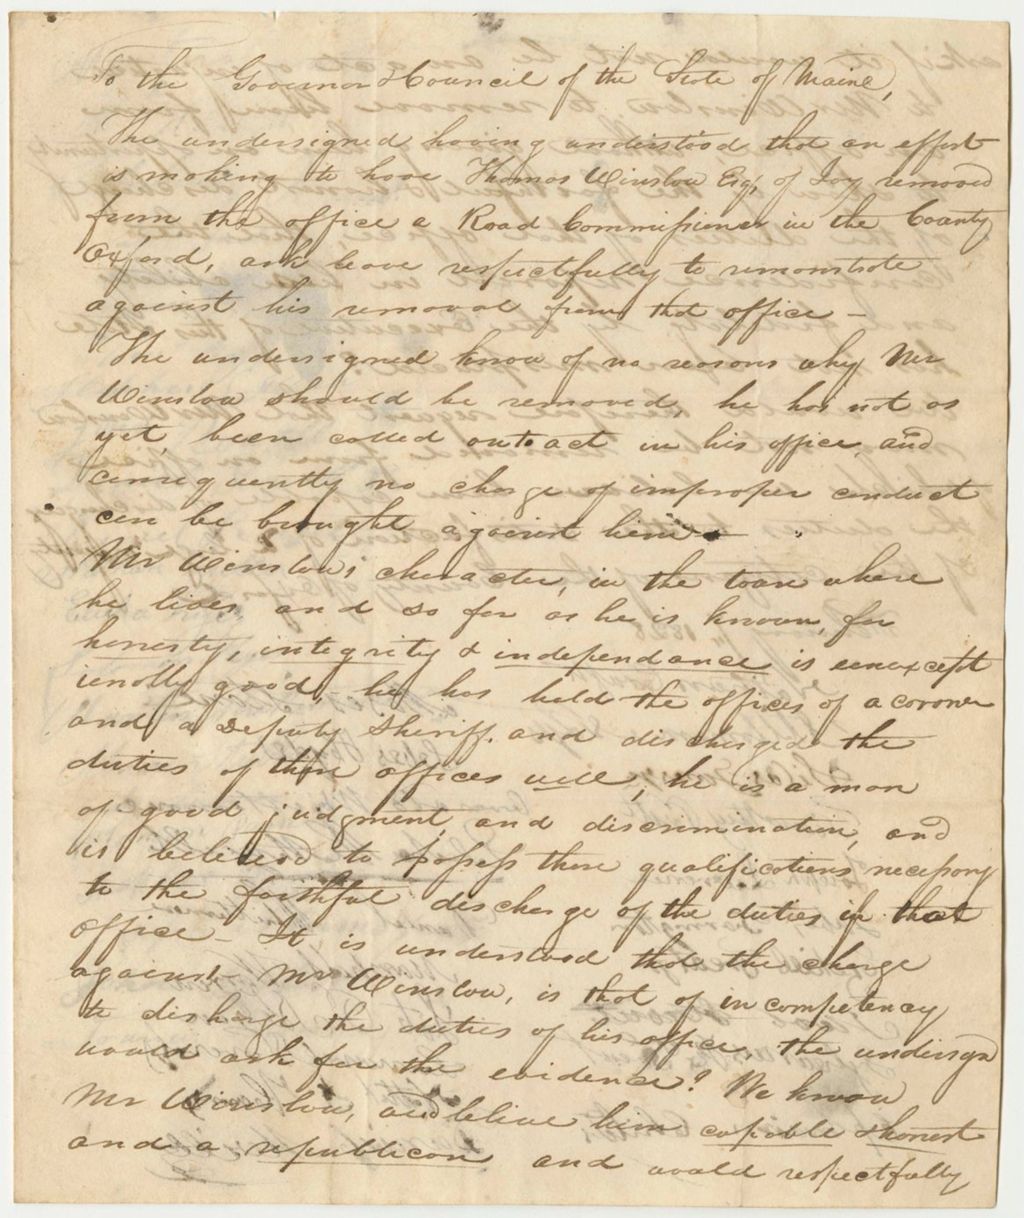 To the Governor & Council of the State of Maine,
The undersigned having understood that an effort
is making to have Thomas Winslow Esq, of Jay removed
from the office a Road Commissioner in the County
Oxford, ask leave respectfully to remonstrate
against his removal from that office –
The undersigned know of no reasons why Mr
Winslow should be removed, he has not as
yet, been called out to act in his office, and
consequently no charge of improper conduct
can be brought against him –
Mr Winslow's character, in the town where
he lives, and so far as he is known, for
honesty, integrity & independance is unexcept
ionally good, he has held the offices of a coroner
and a Deputy Sheriff. and discharged the
duties of those offices well, he is a man
of good judgment and discrimination, and
is believed to possess those qualifications necessary
to the faithful discharge of the duties in that
office – It is understood that the charge
against Mr Winslow, is that of incompetency
to discharge the duties of his office, the undersgd
would ask for the evidence? We know
Mr Winslow, and belive him capable & honest
and a republican and would respectfully